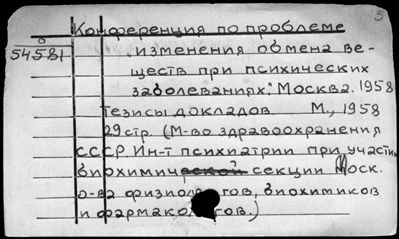 5
Конференция по проблеме
о
54581 "изменения обмена ве-
ществ при психических
заболеваниях." Москва. 1958
Тезисы докладов. М., 1958
29 стр. (М-во здравоохранения
СССР. Ин-т психиатрии при участии
биохимической секции Моск.
о-ва физиологов, биохимиков
и фармакологов.)